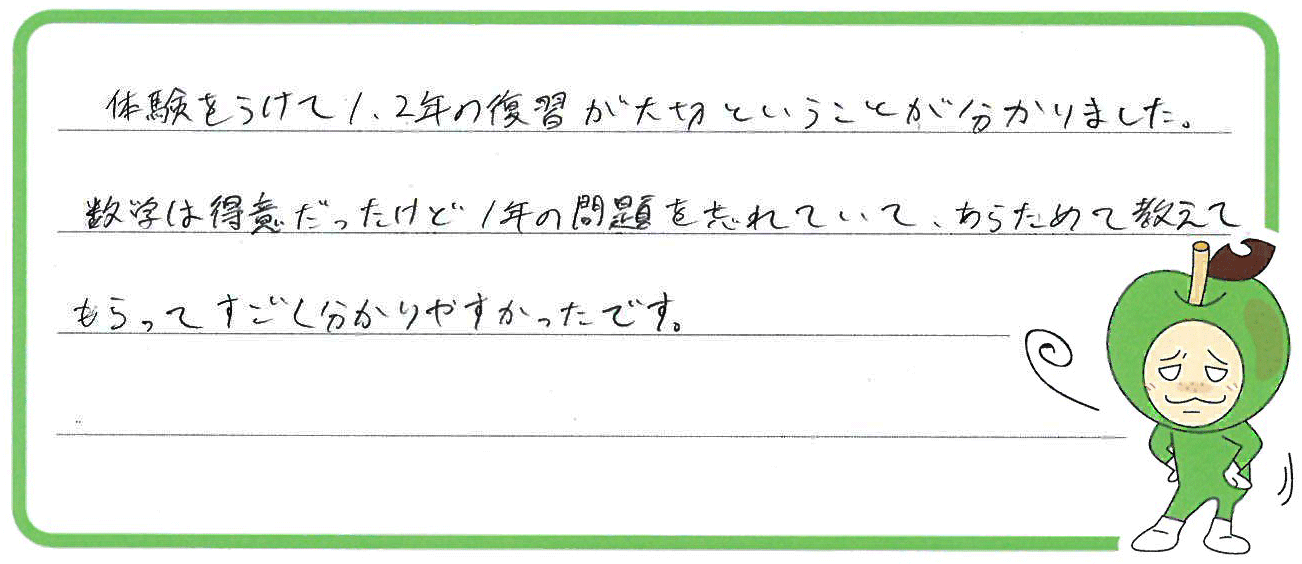 体験をうけて1、2年の復習が大切ということが分かりました。
数学は得意だったけど1年の問題を忘れていて、あらためて教えて
もらってすごく分かりやすかったです。